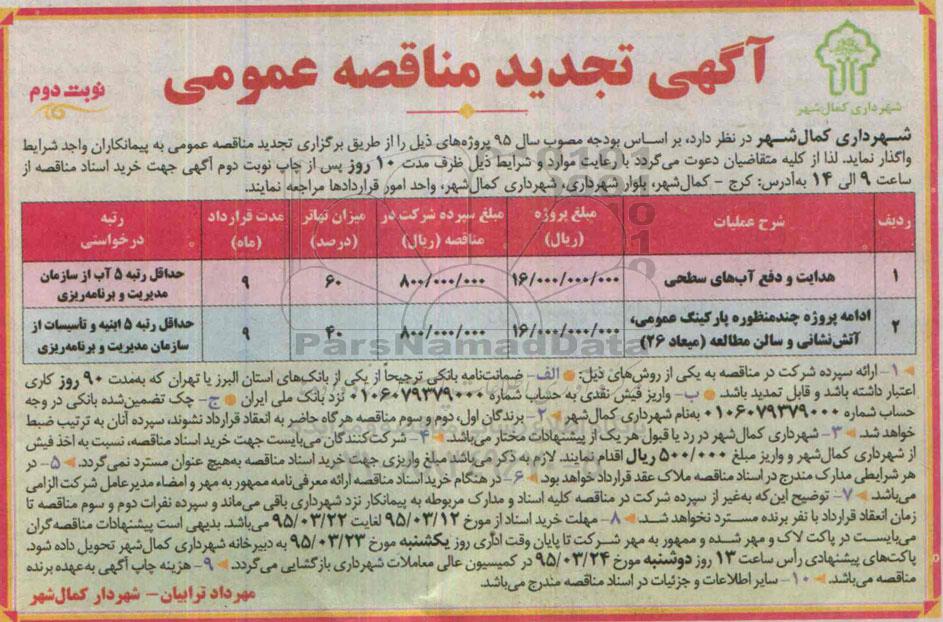 آگهی تجدید مناقصه عمومی
نوبت دوم
شهرداری کمال‌شهر
شهرداری کمال‌شهر در نظر دارد، بر اساس بودجه مصوب سال ۹۵ پروژه‌های ذیل را از طریق برگزاری تجدید مناقصه عمومی به پیمانکاران واجد شرایط
واگذار نماید. لذا از کلیه متقاضیان دعوت می‌گردد با رعایت موارد و شرایط ذیل ظرف مدت ۱۰ روز پس از چاپ نوبت دوم آگهی جهت خرید اسناد مناقصه از
ساعت ۹ الی ۱۴ به‌آدرس: کرج - کمال‌شهر، بلوار شهرداری، شهرداری کمال‌شهر، واحد امور قراردادها مراجعه نمایند.
ردیف شرح عملیات مبلغ پروژه (ریال) مبلغ سپرده شرکت در مناقصه (ریال) میزان تهاتر (درصد) مدت قرارداد (ماه) رتبه درخواستی
۱ هدایت و دفع آب‌های سطحی ۱۶/۰۰۰/۰۰۰/۰۰۰ ۸۰۰/۰۰۰/۰۰۰ ۶۰ ۹ حداقل رتبه ۵ آب از سازمان مدیریت و برنامه‌ریزی
۲ ادامه پروژه چندمنظوره پارکینگ عمومی، آتش‌نشانی و سالن مطالعه (میعاد ۲۶) ۱۶/۰۰۰/۰۰۰/۰۰۰ ۸۰۰/۰۰۰/۰۰۰ ۴۰ ۹ حداقل رتبه ۵ ابنیه و تأسیسات از سازمان مدیریت و برنامه‌ریزی
ParsNamadData
۱- ارائه سپرده شرکت در مناقصه به یکی از روش‌های ذیل: الف- ضمانت‌نامه بانکی ترجیحاً از یکی از بانک‌های استان البرز یا تهران که به‌مدت ۹۰ روز کاری
اعتبار داشته باشد و قابل تمدید باشد. ب- واریز فیش نقدی به حساب شماره ۰۱۰۶۰۷۹۳۷۹۰۰۰ نزد بانک ملی ایران ج- چک تضمین‌شده بانکی در وجه
حساب شماره ۰۱۰۶۰۷۹۳۷۹۰۰۰ به‌نام شهرداری کمال‌شهر ۲- برندگان اول، دوم و سوم مناقصه هر گاه حاضر به انعقاد قرارداد نشوند، سپرده آنان به ترتیب ضبط
خواهد شد. ۳- شهرداری کمال‌شهر در رد یا قبول هر یک از پیشنهادات مختار می‌باشد. ۴- شرکت‌کنندگان می‌بایست جهت خرید اسناد مناقصه، نسبت به اخذ فیش
از شهرداری کمال‌شهر و واریز مبلغ ۵۰۰/۰۰۰ ریال اقدام نمایند. لازم به ذکر می‌باشد مبلغ واریزی جهت خرید اسناد مناقصه به‌هیچ عنوان مسترد نمی‌گردد. ۵- در
هر شرایطی مدارک مندرج در اسناد مناقصه ملاک عقد قرارداد خواهد بود. ۶- در هنگام خرید اسناد مناقصه ارائه معرفی‌نامه ممهور به مهر و امضاء مدیرعامل شرکت الزامی
می‌باشد. ۷- توضیح این‌که به‌غیر از سپرده شرکت در مناقصه کلیه اسناد و مدارک مربوطه به پیمانکار نزد شهرداری باقی می‌ماند و سپرده نفرات دوم و سوم مناقصه تا
زمان انعقاد قرارداد با نفر برنده مسترد نخواهد شد. ۸- مهلت خرید اسناد از مورخ ۹۵/۰۳/۱۲ لغایت ۹۵/۰۳/۲۲ می‌باشد. بدیهی است پیشنهادات مناقصه‌گران
می‌بایست در پاکت لاک و مهر شده و ممهور به مهر شرکت تا پایان وقت اداری روز یکشنبه مورخ ۹۵/۰۳/۲۳ به دبیرخانه شهرداری کمال‌شهر تحویل داده شود.
پاکت‌های پیشنهادی رأس ساعت ۱۳ روز دوشنبه مورخ ۹۵/۰۳/۲۴ در کمیسیون عالی معاملات شهرداری بازگشایی می‌گردد. ۹- هزینه چاپ آگهی به‌عهده برنده
مناقصه می‌باشد. ۱۰- سایر اطلاعات و جزئیات در اسناد مناقصه مندرج می‌باشد.
مهرداد ترابیان - شهردار کمال‌شهر